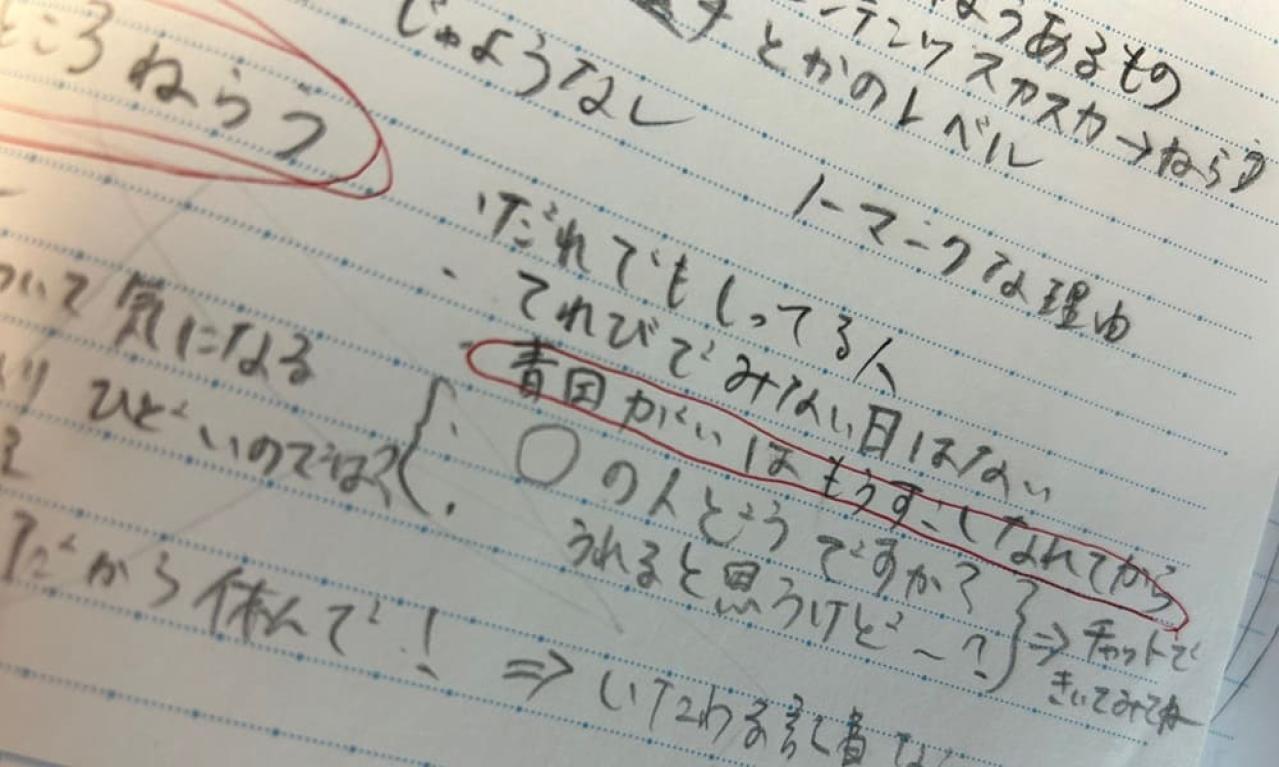 ようあるもの
ンテンツスカスカ→ねらう
とかのレベル
じゅようなし
ころねらう
ーマークな理由
・だれでもしってる人
・てれびでみない日はない
・青因がいはもうすこしなれてから
・○の人どうですか?
・うれると思うけど~?
⇒チャットで
きいてみてね
ついて気になる
ひどいのでは?
だから休んで!
⇒いたわる記